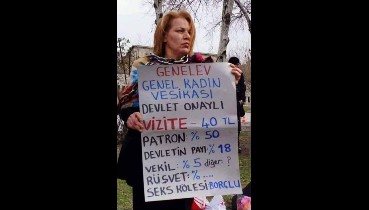 GENELEV
GENEL KADIN
VESİKASI
DEVLET ONAYLI
VİZİTE - 40 TL
PATRON % 50
DEVLETİN PAYI: % 18
VEKİL: % 5 diğer: ?
RÜŞVET: % ....
SEKS KÖLESİ: BORÇLU